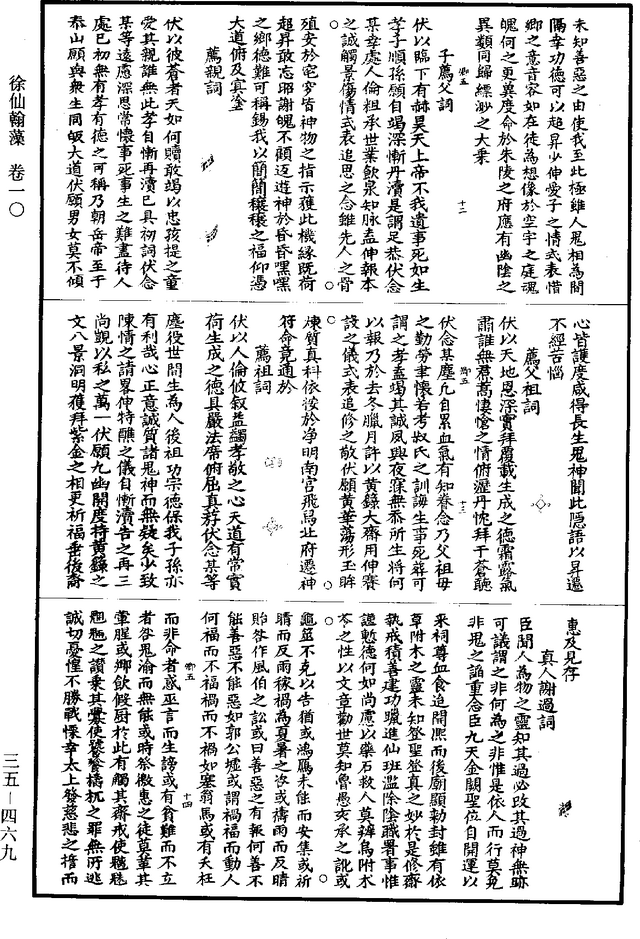 徐仙翰藻　卷一〇
三五—四六九
未知善惡之由使我至此極雖人鬼相為間
隔幸功德可以超昇少伸愛子之情式表惜
鄉之意音容如在徒為想像於空宇之庭魂
魄何之更冀度命於朱陵之府應有幽陰之
異類同歸縹渺之大葉
子薦父詞
伏以臨下有赫昊天上帝不我遺事死如生
孝子順孫願自竭深慚丹瀆是謂足恭伏念
某幸處人倫祖承世業飲泉知脉盍伸報本
之誠觸景傷情式表追思之念雖先人之骨
殖安於窀穸皆神物之指示獲此機緣既荷
超昇敢忘昭謝魄不顧迈遊神於昏昏嘿嘿
之鄉德難可稱錫我以簡簡穰穰之福仰憑
大道俯及真筌
薦親詞
伏以彼蒼者天如何贖敢竭以忠孩提之童
愛其親誰無此孝自慚再瀆已具初詞伏念
某等遠處深恩常懷事死事生之難晝待人
處已初無有孝有德之可稱乃朝岳帝至于
泰山願與眾生同皈大道伏願男女莫不傾
心皆護度咸得長生鬼神聞此隱語以昇遷
不經苦惱
薦父祖詞
伏以天地恩深實拜覆載生成之德霜露氣
肅誰無焄蒿悽愴之情俯瀝丹忱拜干蒼聽
伏念某塵凡自累血氣有知眷念乃父祖母
之勤勞聿懷若考叔氏之訓誨生事死葬可
謂之孝盍竭其誠夙興夜寐無忝所生將何
以報乃於去冬臘月許以黃籙大齋用伸賽
謢之儀式表追修之散伏願黃華蕩形玉眸
煉質真科依按於净明南宫飛舃北府遷神
符命竟通於
薦祖詞
伏以人倫攸叙益蠲孝敬之心天道有常實
荷生成之德具嚴法席俯屈真游伏念某等
塵役世間生為人後祖功宗德保我子孫亦
有利哉心正意誠質諸鬼神而無疑矣少致
陳情之請畧伸特醮之儀自慚瀆告之再三
尚覬以私之萬一伏願九幽開度特黃籙之
文八景洞明獲拜紫金之相更祈福垂後裔
惠及見存
真人謝過詞
臣聞人為物之靈知其過必改其過神無跡
可議謂之非何為之非惟是依人而行莫免
非鬼之謟重念臣九天金闕聖位自開運以
來祠尊血食追開熈而後廟顯勅封雖有依
草附木之靈未知登聖登真之妙於是修齋
執戒積善建功躐進仙班滥除陰職署事惟
謹慙德何如尚慮以藥石救人莫辨烏附木
苓之性以文章勸世莫知魯愚亥承之訛或
龜筮不克以告猶或鴻鴈未能而安集或祈
晴而反雨稼禍為夏暑之咨或禱雨而反晴
貽咎作風伯之訟或曰善惡之有報何善不
能善惡不能惡如郭公墟或謂禍福而動人
何福而不福禍而不禍如塞翁馬或有夭枉
而非命者惑巫言而生謗或有貧難而不立
者咎鬼瀹而無能或時祭徼惠之徒莫葷其
葷腥或鄉飲假厨於此有觸其齋戒使魑魅
魍魎之讃乗其釁使饕餮檮杌之罪無所逃
誠切憂惶不勝戰慄幸太上發慈悲之擔而